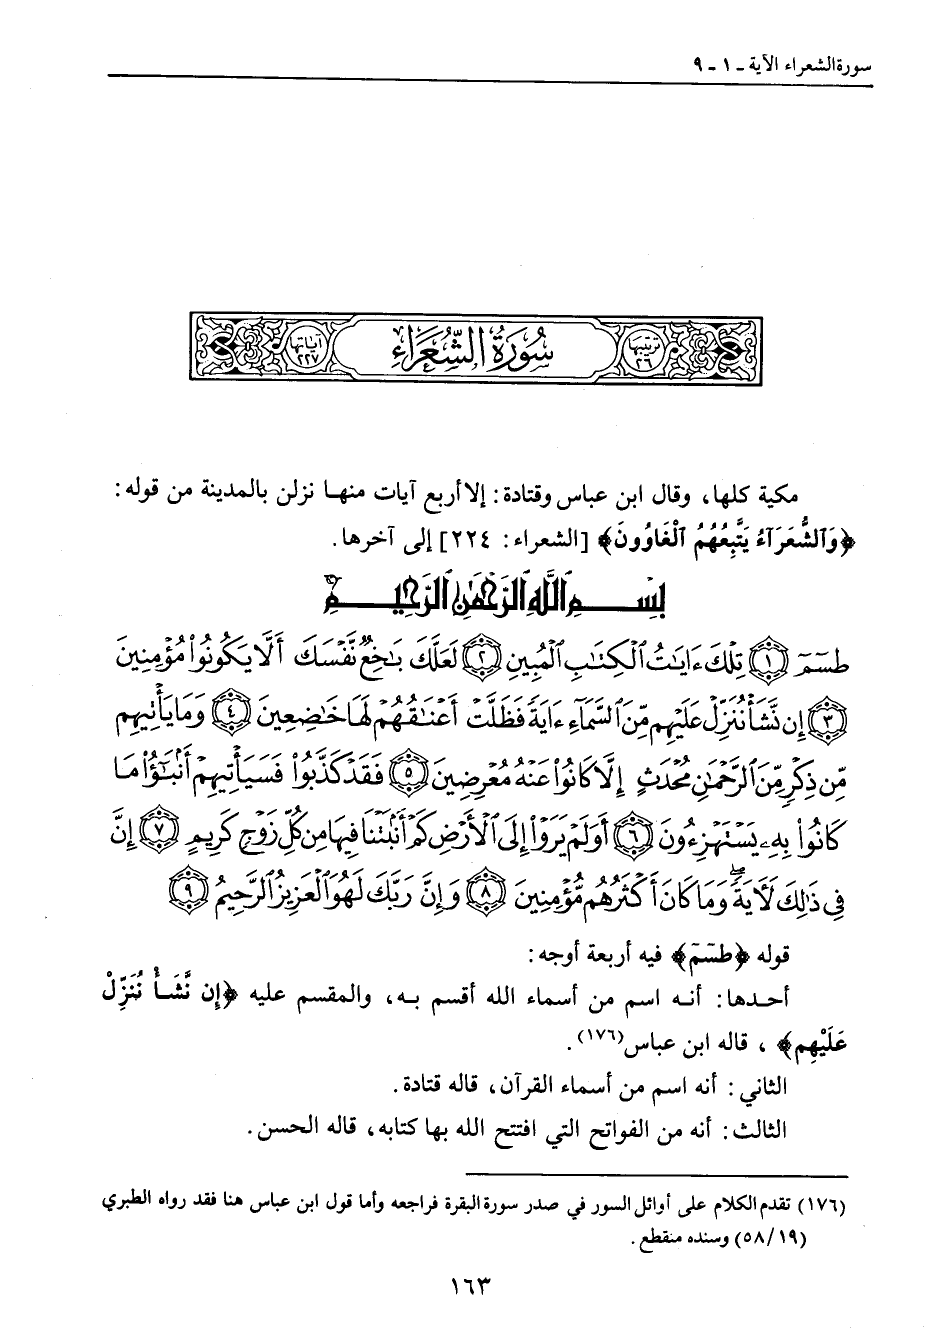 سورة الشعراء الآية - ١ - ٩
ترتيبها ٢٦ سُورَةُ الشُّعَرَاءِ آياتها ٢٢٧
مكية كلها، وقال ابن عباس وقتادة: إلا أربع آيات منها نزلن بالمدينة من قوله:
﴿وَٱلشُّعَرَآءُ يَتَّبِعُهُمُ ٱلْغَاوُونَ﴾ [الشعراء: ٢٢٤] إلى آخرها.
بِسْمِ ٱللَّهِ ٱلرَّحْمَٰنِ ٱلرَّحِيمِ
طسٓمٓ ١ تِلْكَ ءَايَٰتُ ٱلْكِتَٰبِ ٱلْمُبِينِ ٢ لَعَلَّكَ بَٰخِعٌ نَّفْسَكَ أَلَّا يَكُونُوا۟ مُؤْمِنِينَ
٣ إِن نَّشَأْ نُنَزِّلْ عَلَيْهِم مِّنَ ٱلسَّمَآءِ ءَايَةً فَظَلَّتْ أَعْنَٰقُهُمْ لَهَا خَٰضِعِينَ ٤ وَمَا يَأْتِيهِم
مِّن ذِكْرٍ مِّنَ ٱلرَّحْمَٰنِ مُحْدَثٍ إِلَّا كَانُوا۟ عَنْهُ مُعْرِضِينَ ٥ فَقَدْ كَذَّبُوا۟ فَسَيَأْتِيهِمْ أَنۢبَٰٓؤُا۟ مَا
كَانُوا۟ بِهِۦ يَسْتَهْزِءُونَ ٦ أَوَلَمْ يَرَوْا۟ إِلَى ٱلْأَرْضِ كَمْ أَنۢبَتْنَا فِيهَا مِن كُلِّ زَوْجٍ كَرِيمٍ ٧ إِنَّ
فِى ذَٰلِكَ لَءَايَةً ۖ وَمَا كَانَ أَكْثَرُهُم مُّؤْمِنِينَ ٨ وَإِنَّ رَبَّكَ لَهُوَ ٱلْعَزِيزُ ٱلرَّحِيمُ ٩
قوله ﴿طسٓمٓ﴾ فيه أربعة أوجه:
أحدها: أنه اسم من أسماء الله أقسم به، والمقسم عليه ﴿إِن نَّشَأْ نُنَزِّلْ
عَلَيْهِم﴾، قاله ابن عباس(١٧٦).
الثاني: أنه اسم من أسماء القرآن، قاله قتادة.
الثالث: أنه من الفواتح التي افتتح الله بها كتابه، قاله الحسن.
(١٧٦) تقدم الكلام على أوائل السور في صدر سورة البقرة فراجعه وأما قول ابن عباس هنا فقد رواه الطبري
(٥٨/١٩) وسنده منقطع.
١٦٣